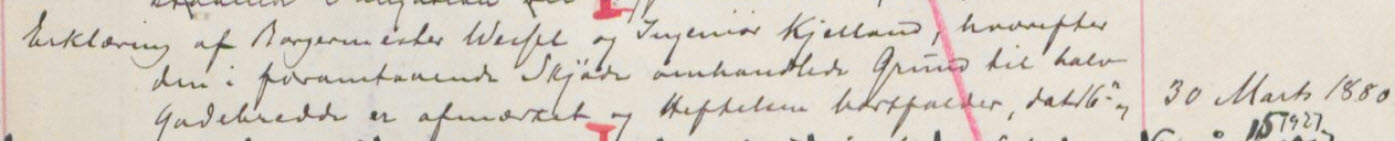 Erklæring af Borgermester Wessel og Ingeniør Kjelland, hvorefter
den i foranstaaende Skjøde omhandlede Grund til halv
Gadebredde er afmærket og Heftelsen bortfalder, dat. 16 og 30 Marts 1880